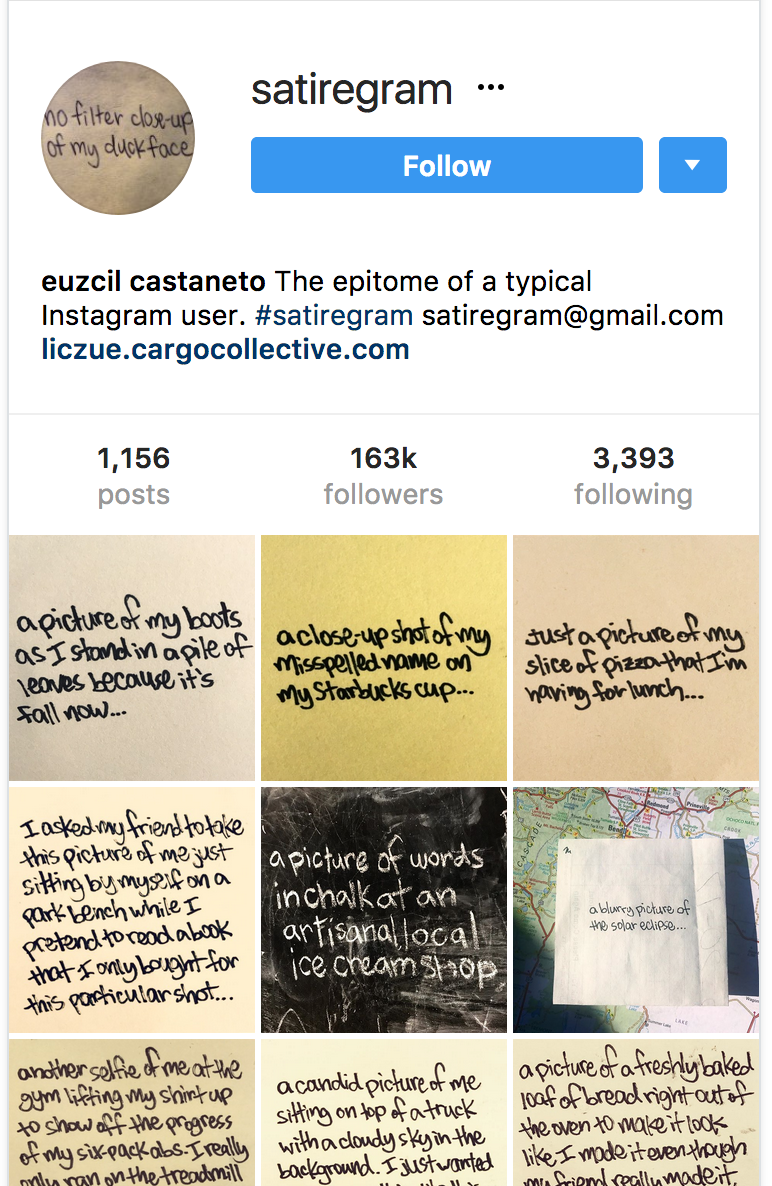 no filter close-up
of my duckface
satiregram ...
Follow
euzcil castaneto The epitome of a typical
Instagram user. #satiregram satiregram@gmail.com
liczue.cargocollective.com
1,156
posts
163k
followers
3,393
following
a picture of my boots
as I stand in a pile of
leaves because it's
fall now...
a close-up shot of my
misspelled name on
my Starbucks cup...
Just a picture of my
slice of pizza that I'm
having for lunch...
I asked my friend to take
this picture of me just
sitting by myself on a
park bench while I
pretend to read a book
that I only bought for
this particular shot...
a picture of words
in chalk at an
artisanal local
ice cream shop
Redmond
Prineville
Bend
CASCADE
a blurry picture of
the solar eclipse...
LAKE
another selfie of me at the
gym lifting my shirt up
to show off the progress
of my six-pack abs. I really
only ran on the treadmill
a candid picture of me
sitting on top of a truck
with a cloudy sky in the
background. I just wanted
a picture of a freshly baked
loaf of bread right out of
the oven to make it look
like I made it even though
my friend really made it.